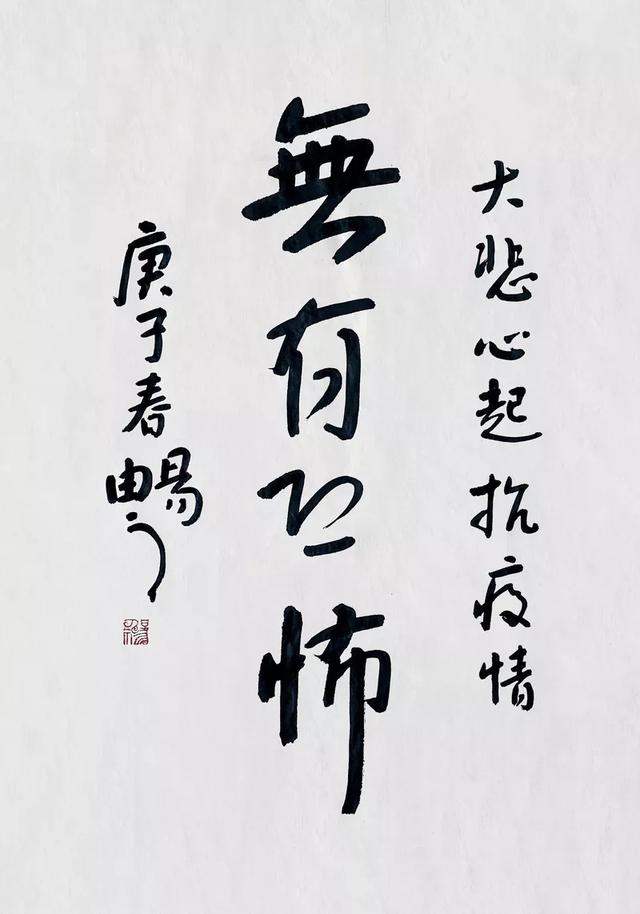 大悲心起抗疫情
無有恐怖
庚子春暢